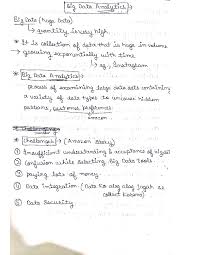 Big Data Analytics
Big Data (huge Data)
↳ Quantity is very high.
* It is collection of data that is huge in volume
→ growing exponentially with time
↳ eg, Instagram
* Big Data Analytics
Process of examining large data sets containing
a variety of data types to uncover hidden
patterns,
Amazon
* Challenges → (Amazon Story)
① Insufficient understanding & acceptance of big data
② Confusion while selecting Big Data Tools
③ Paying lots of money
④ Data Integration (Data ko alag alag jagah se
collect karna)
⑤ Data Security